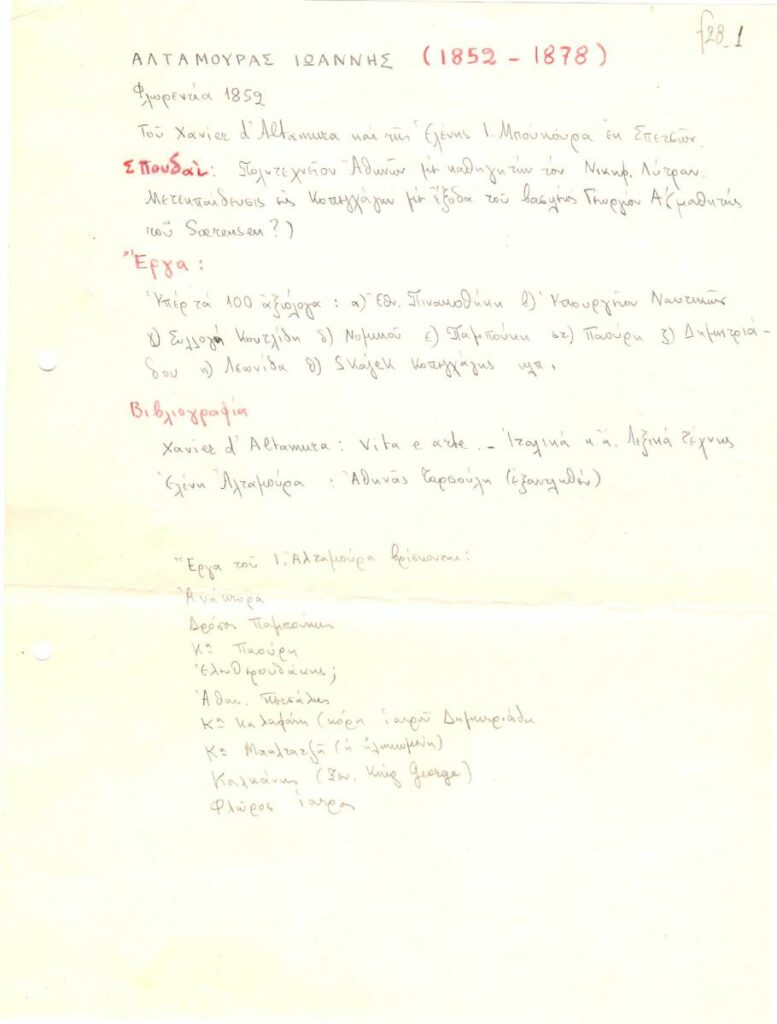 f28_1
ΑΛΤΑΜΟΥΡΑΣ ΙΩΑΝΝΗΣ (1852 - 1878)
Φλωρεντία 1852
Τοῦ Xavier d'Altamura καί τῆς Ἑλένης Ι. Μπούκουρα ἐκ Σπετσῶν.
Σπουδαί: Πολυτεχνεῖον Ἀθηνῶν μέ καθηγητήν τόν Νικηφ. Λύτραν.
Μετεκπαίδευσις εἰς Κοπεγχάγην μέ ἔξοδα τοῦ βασιλέως Γεωργίου Α' (μαθητής
τοῦ Sørensen?)
Ἔργα:
Ὑπέρ τά 100 ἀξιόλογα: α) Ἐθν. Πινακοθήκη β) Ὑπουργεῖον Ναυτικῶν
γ) Συλλογή Κουτλίδη δ) Νομικοῦ ε) Παμπούκη στ) Παούρη ζ) Δημητριά-
δου η) Λεωνίδα θ) Κοπεγχάγης κλπ.
Βιβλιογραφία
Xavier d'Altamura: Vita e arte. - Ἰταλικά κ.ἄ. Λεξικά Τέχνης
Ἑλένη Ἀλταμούρα: Ἀθηνᾶς Ταρσούλη (ἐξαντληθέν)
Ἔργα τοῦ Ι. Ἀλταμούρα βρίσκονται:
Ἀνάκτορα
Δρόσος Παμπούκης
Κα Παούρη
Ἐλευθερουδάκης;
Ἀθαν.
Κα Καλαφάτη (κόρη ἰατροῦ Δημητριάδη
Κα (ἡ ἡλικιωμένη)
Καλκάνης (Ξεν. King George)
Φλῶρος ἰατρός